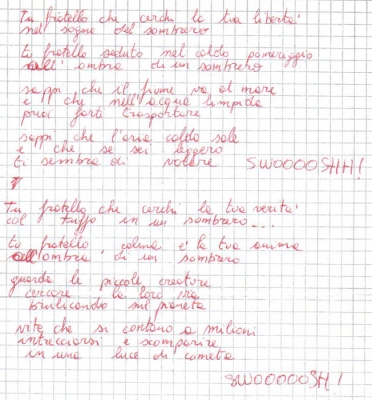 Tu fratello che cerchi la tua libertà
nel sogno del sombrero
tu fratello seduto nel caldo pomeriggio
all'ombra di un sombrero
sappi che il fiume va al mare
e che nell'acqua limpida
puoi farti trasportare
sappi che l'aria calda sale
e che se sei leggero
ti sembra di volare SWOOOOSHH!
Tu fratello che cerchi la tua verità
col tuffo in un sombrero...
tu fratello calma è la tua anima
all'ombra di un sombrero
guarda le piccole creature
cercare la loro via
brulicando sul pianeta
vite che si contano a milioni
intrecciarsi e scomparire
in una luce di cometa
SWOOOOOSH!